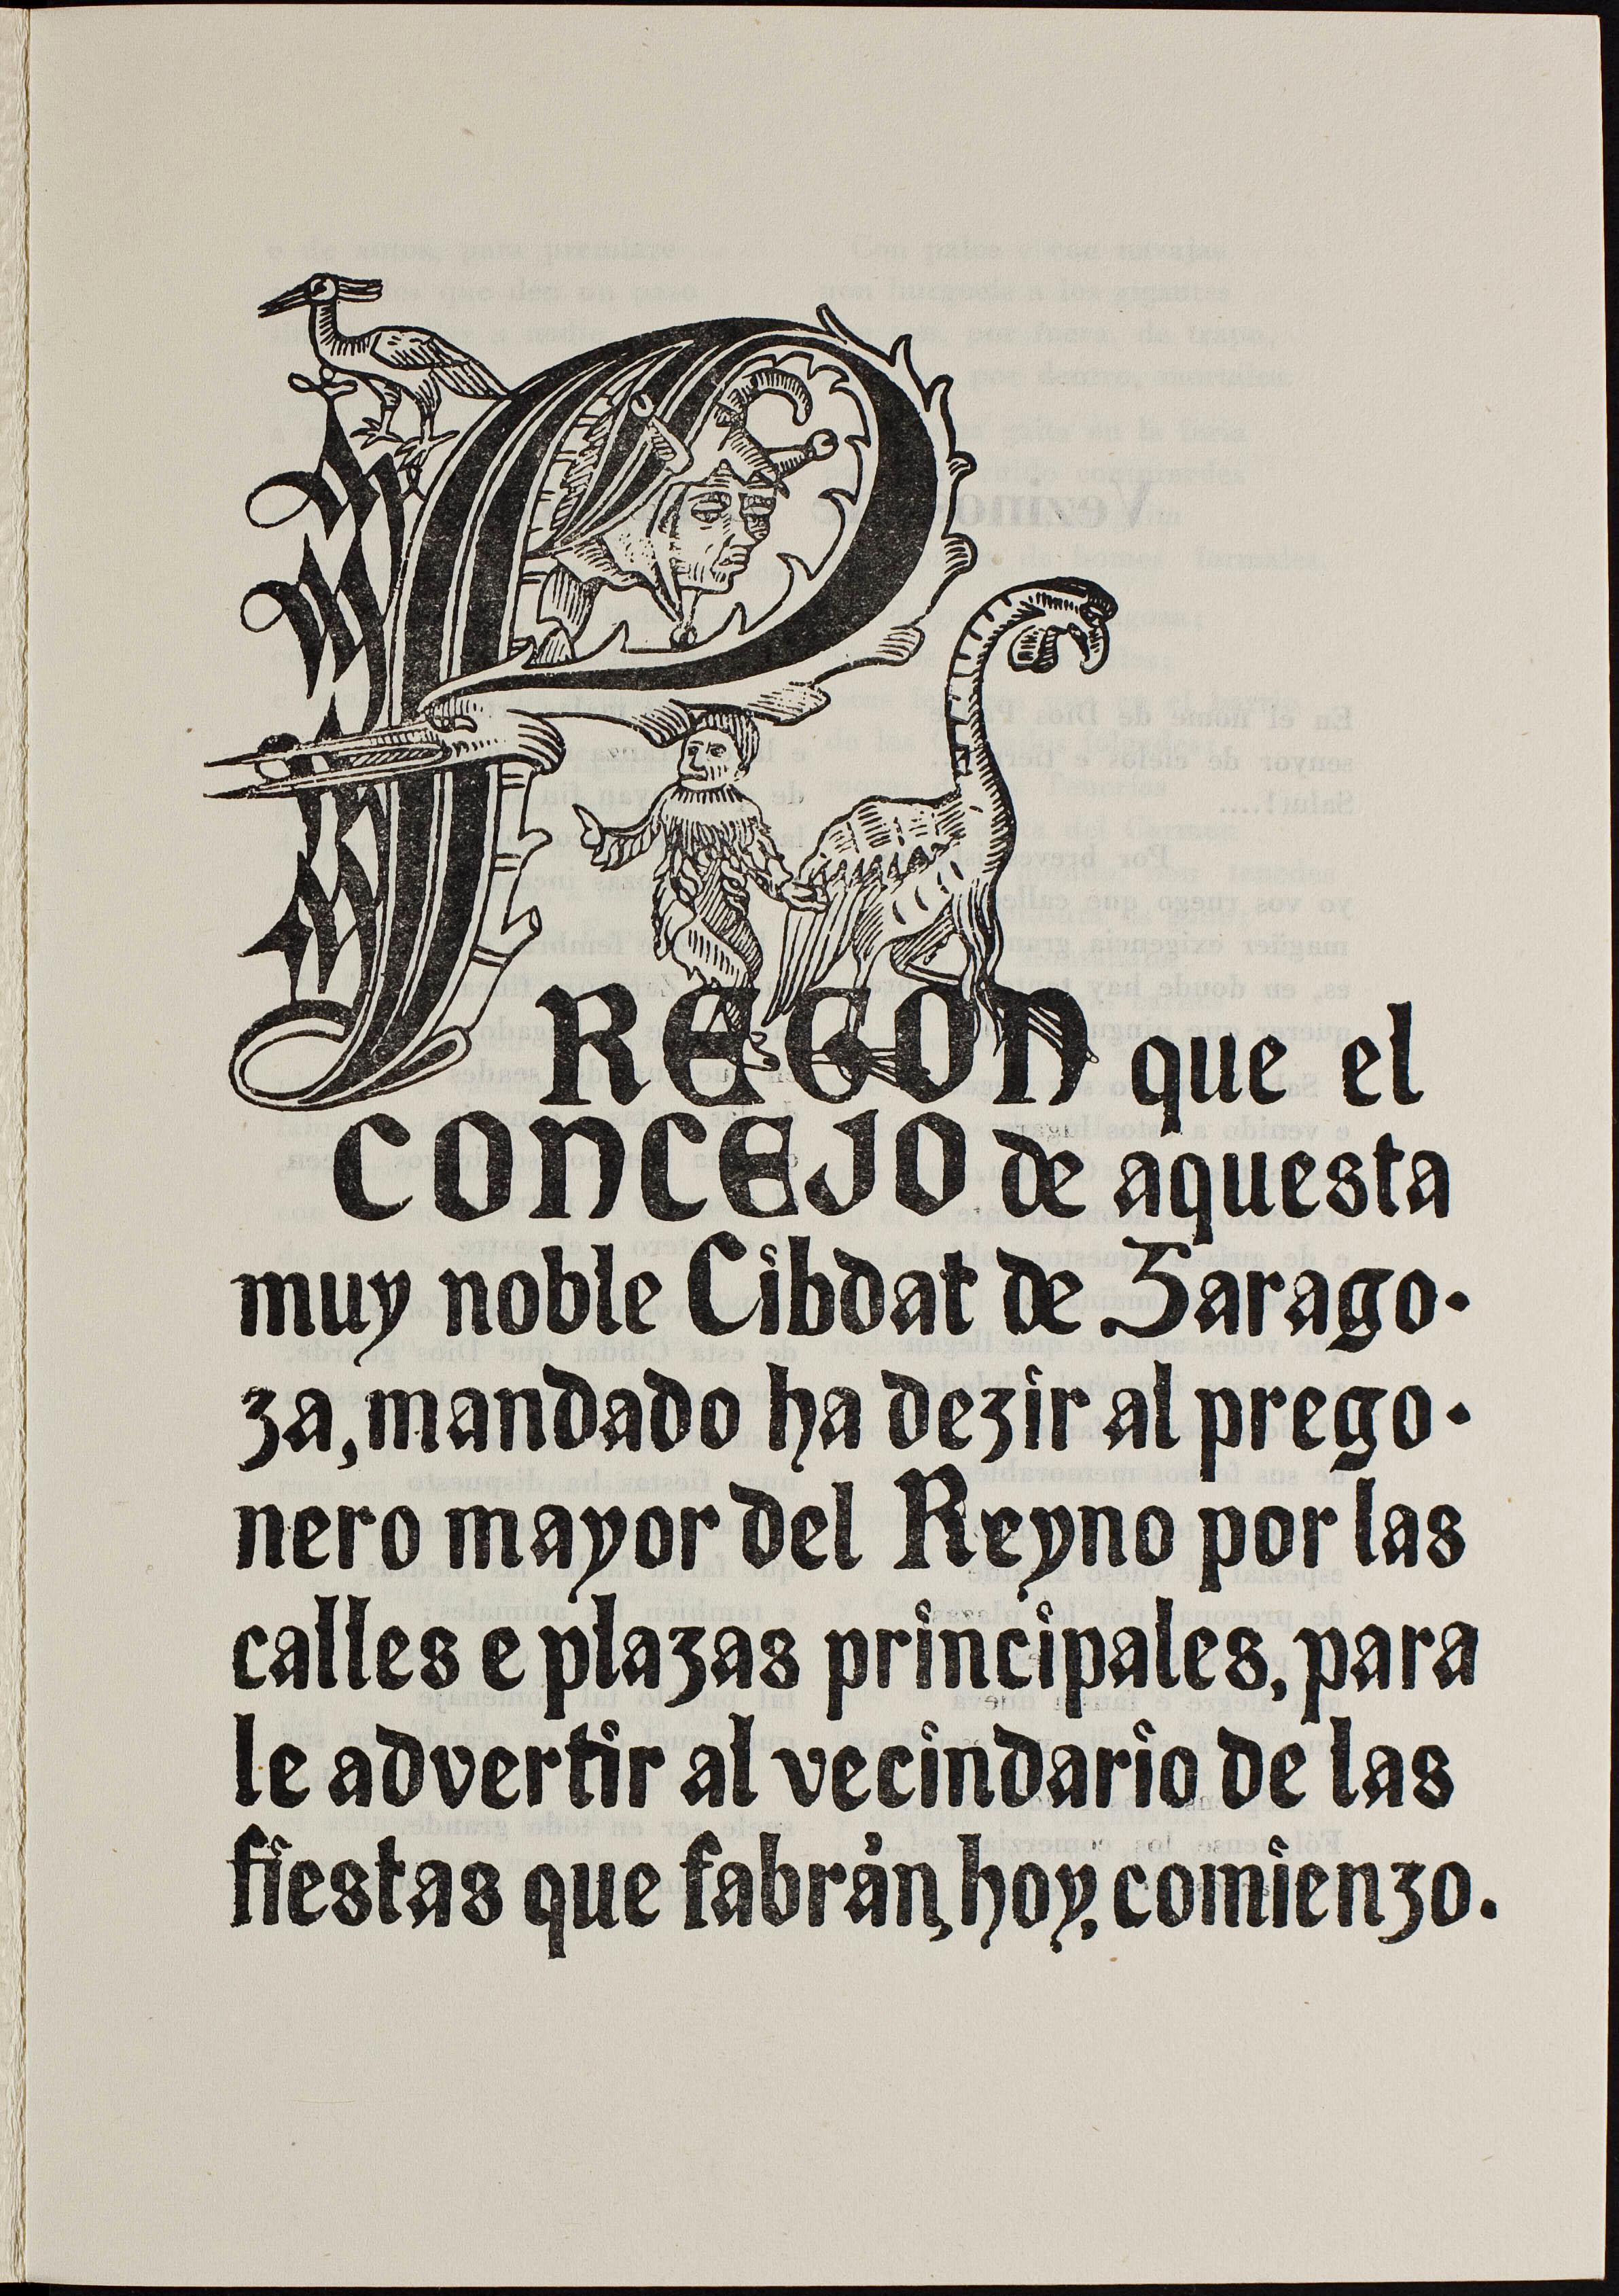 PREGON que el
CONCEJO de aquesta
muy noble Cibdat de Zarago-
za, mandado ha dezir al prego-
nero mayor del Reyno por las
calles e plazas principales, para
le advertir al vecindario de las
fiestas que fabrán, hoy, comienzo.